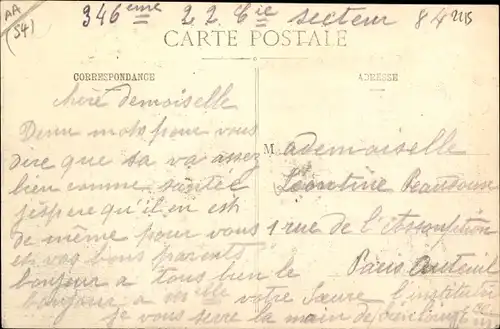 AA
(54)
346ème 22 Cie secteur 84
CARTE POSTALE
CORRESPONDANCE
ADRESSE
chère demoiselle
Deux mots pour vous
dire que sa va assez
bien comme santée
j'espere qu'il en est
de même pour vous
et vos bons parents
bonjour a tous bien le
bonjour a melle votre Sœure l'institu
je vous serre la main de
Mademoiselle
Léontine
1 rue de l'Assomption
Paris Auteuil